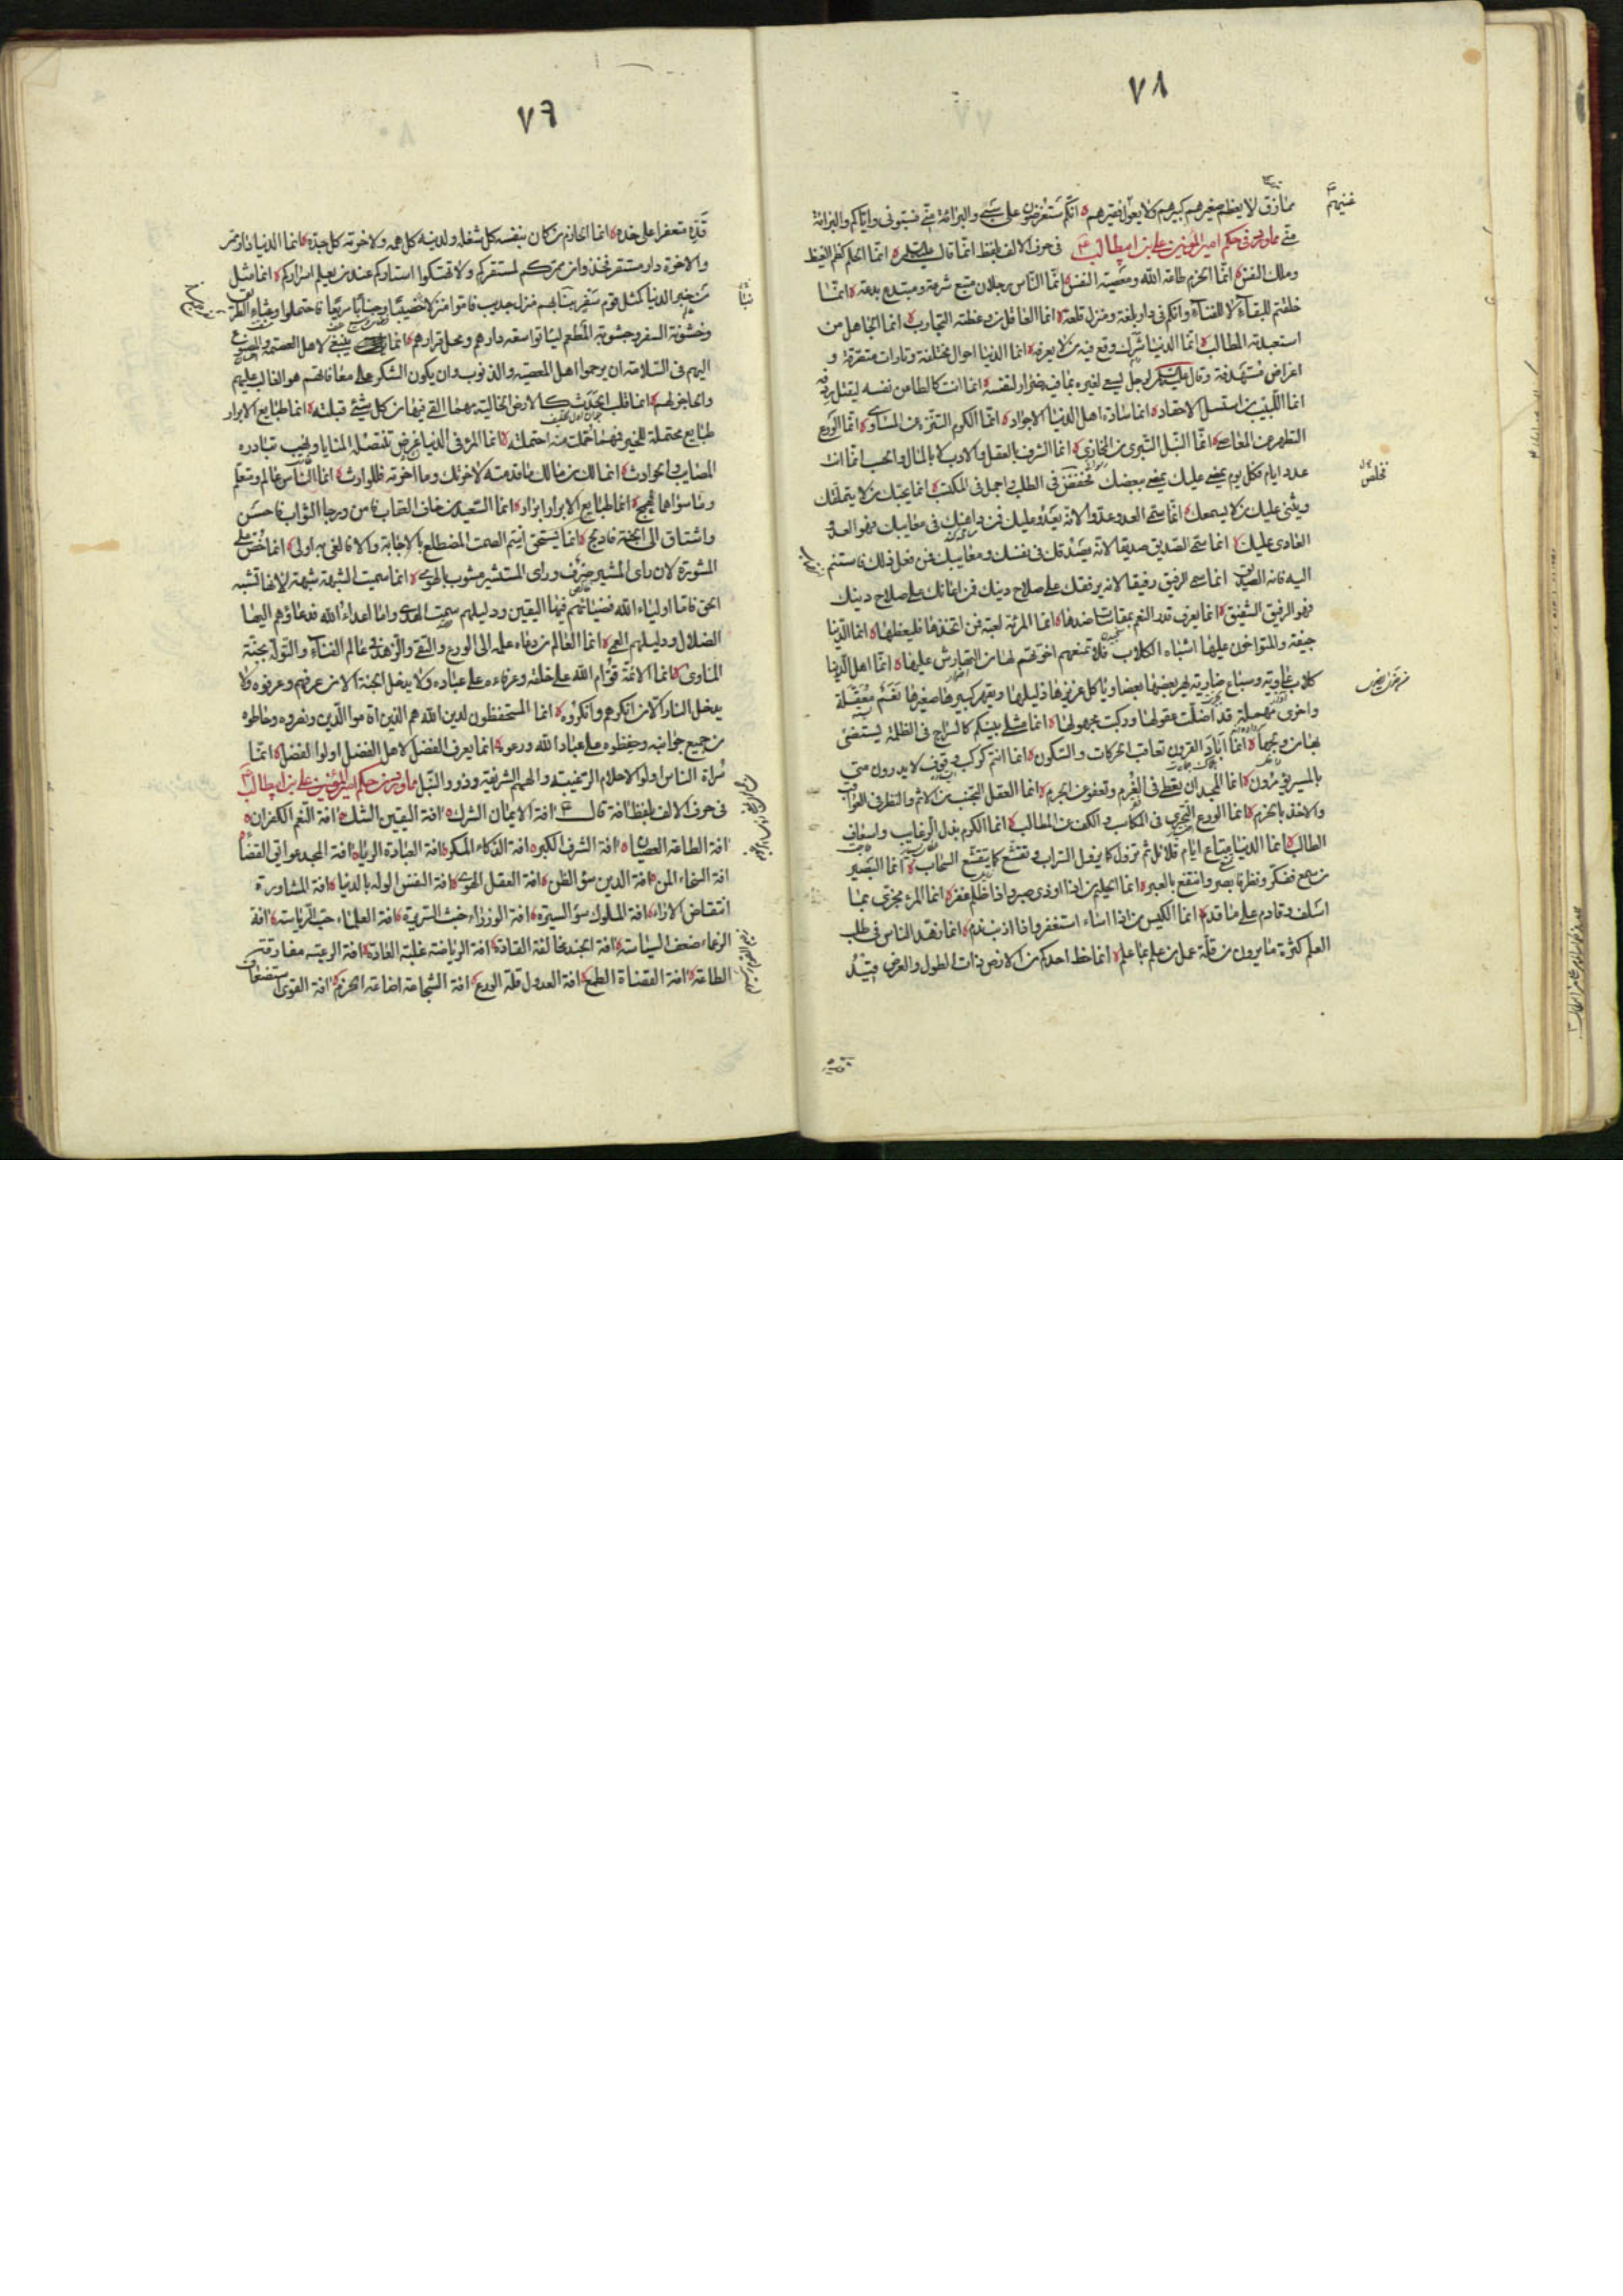 ٧٨
ممازق لا يعظم صغيرهم كبيرهم ولا يعول فقيرهم ه انكم ستعرضون على سبي والبراءة مني فسبوني واياكم والبراءة
مني مما ورد في حكم امير المؤمنين علي بن ابيطالب ع في حرف الالف بلفظ انما قال عليه السلام ه انما الحلم كظم الغيظ
وملك النفس ه انما الحزم طاعة الله ومعصية النفس ه انما الناس رجلان متبع شرعة ومبتدع بدعة ه انما
خلقتم للبقاء لا للفناء وانكم في دار بلغة ومنزل قلعة ه انما العاقل من وعظته التجارب ه انما الجاهل من
استعبدته المطالب ه انما الدنيا شرك وقع فيه من لا يعرفه ه انما الدنيا احوال مختلفة وتارات متصرفة و
اغراض مستهدفة وقال لرجل يسعى لغيره بما فيه ضرار لنفسه انما انت كالطاعن نفسه ليقتل ردفه
انما اللبيب من استسل الاحقاد ه انما سادة اهل الدنيا الاجواد ه انما الكرم التنزه عن المساوى ه انما الورع
التطهر عن المعاصي ه انما النبل التبري من المخازي ه انما الشرف بالعقل والادب لا بالمال والحسب انما انت
عدد ايام فكل يوم يمضي عليك يمضي ببعضك فخفض في الطلب واجمل في المكتسب ه انما يحبك من لا يتملقك
ويثني عليك من لا يسمعك ه انما سمي العدو عدوا لانه يعدو عليك فمن داهنك في معايبك فهو العدو
العادي عليك ه انما سمي الصديق صديقا لانه يصدقك في نفسك ومعايبك فمن فعل ذلك فاستنم
اليه فانه الصديق انما سمي الرفيق رفيقا لانه يرفقك على صلاح دينك فمن اعانك على صلاح دينك
فهو الرفيق الشفيق ه انما يعرف قدر النعم بمقاسات ضدها ه انما المرءة لعبة فمن اتخذها فليغطها ه انما الدنيا
جيفة والمتواخون عليها اشباه الكلاب فلا تمنعهم اخوتهم لها من التهارش عليها ه انما اهل الدنيا
كلاب عاوية وسباع ضارية يهر بعضها بعضا ويأكل عزيزها ذليلها ويقهر كبيرها صغيرها نعم معقلة
واخرى مهملة قد اضلت عقولها وركبت مجهولها ه انما مثلي بينكم كالسراج في الظلمة يستضئ
بها من ولجها ه انما اباد القرون تعاقب الحركات والسكون ه انما انتم كركب وقوف لا يدرون متى
بالمسير يؤمرون ه انما المجد ان يعطى في الغرم وتعفو عن الجرم ه انما العقل التجنب من الاثم والنظر في العواقب
والاخذ بالحزم ه انما الورع التحري في المكاسب والكف عن المطالب ه انما الكرم بذل الرغايب واسعاف
الطالب ه انما الدنيا متاع ايام قلائل ثم تزول كما يزول السراب وتقشع كما يقشع السحاب ه انما البصير
من سمع ففكر ونظر فابصر وانتفع بالعبر ه انما الحليم من اذا اوذي صبر واذا ظلم غفر ه انما المرء مجزي بما
اسلف وقادم على ما قدم ه انما الكيس من اذا اساء استغفر واذا اذنب ندم ه انما زهد الناس في طلب
العلم كثرة ما يرون من قلة عمل من علم بما علم ه انما حظ احدكم من الارض ذات الطول والعرض قيد
٧٦
قده متعفرا على خده ه انما الحازم من كان بنفسه كل شغله ولدينه كل همه ولاخرته كل جده ه انما الدنيا دار ممر
والاخرة دار مستقر فخذوا من ممركم لمستقركم ولا تهتكوا استاركم عند من يعلم اسراركم ه انما مثل
من خبر الدنيا كمثل قوم سفر نبا بهم منزل جديب فاموا منزلا خصيبا وجنابا مريعا فاحتملوا وعثاء الطريق
وخشونة السفر وجشوبة المطعم لياتوا سعة دارهم ومحل قرارهم ه انما ينبغي لاهل العصمة والمصنوع
اليهم في السلامة ان يرحموا اهل المعصية والذنوب وان يكون الشكر على معافاتهم هو الغالب عليهم
والحاجز لهم ه انما قلب الحدث كالارض الخالية مهما القي فيها من كل شئ قبلته ه انما طبايع الابرار
طبايع محتملة للخير فمهما حملت منه احتملته ه انما المرء في الدنيا غرض تنتضله المنايا ونهب تبادره
المصايب والحوادث ه انما لك من مالك ما قدمته لاخرتك وما اخرته فللوارث ه انما الناس عالم ومتعلم
وما سواهما فهمج ه انما طبايع الابرار ابرار ه انما السعيد من خاف العقاب فامن ورجا الثواب فاحسن
واشتاق الى الجنة فادلج ه انما يستحق اسم الصمت المضطلع بالاجابة والا فالعي به اولى ه انما حض على
المشورة لان راى المشير صرف وراى المستشير مشوب بالهوى ه انما سميت الشبهة شبهة لانها تشبه
الحق فاما اولياء الله فضياؤهم فيها اليقين ودليلهم سمت الهدى واما اعداء الله فدعاؤهم اليها
الضلال ودليلهم العمى ه انما العالم من دعاه علمه الى الورع والتقى والزهد في عالم الفناء والتوله بجنة
المأوى ه انما الائمة قوام الله على خلقه وعرفاءه على عباده ولا يدخل الجنة الا من عرفهم وعرفوه ولا
يدخل النار الا من انكرهم وانكروه ه انما المستحفظون لدين الله هم الذين اقاموا الدين ونصروه وحاطوه
من جميع جوانبه وحفظوه على عباد الله ورعوه ه انما يعرف الفضل لاهل الفضل اولوا الفضل ه انما
سراة الناس اولوا الاحلام الرغيبة والهمم الشريفة وذوو النبل مما ورد من حكم امير المؤمنين علي بن ابيطالب ع
في حرف الالف بلفظ افة قال ع افة الايمان الشرك ه افة اليقين الشك ه افة النعم الكفران ه
افة الطاعة العصيان ه افة الشرف الكبر ه افة الذكاء المكر ه افة العبادة الرياء ه افة المجد عوائق القضاء ه
افة السخاء المن ه افة الدين سؤ الظن ه افة العقل الهوى ه افة النفس الوله بالدنيا ه افة المشاورة
انتقاض الاراء ه افة الملوك سؤ السيرة ه افة الوزراء خبث السريرة ه افة العلماء حب الرياسة ه افة
الزعماء ضعف السياسة ه افة الجند مخالفة القادة ه افة الرياضة غلبة العادة ه افة الرعية مفارقة
الطاعة ه افة القضاة الطمع ه افة العدول قلة الورع ه افة الشجاعة اضاعة الحزم ه افة القوى استضعاف